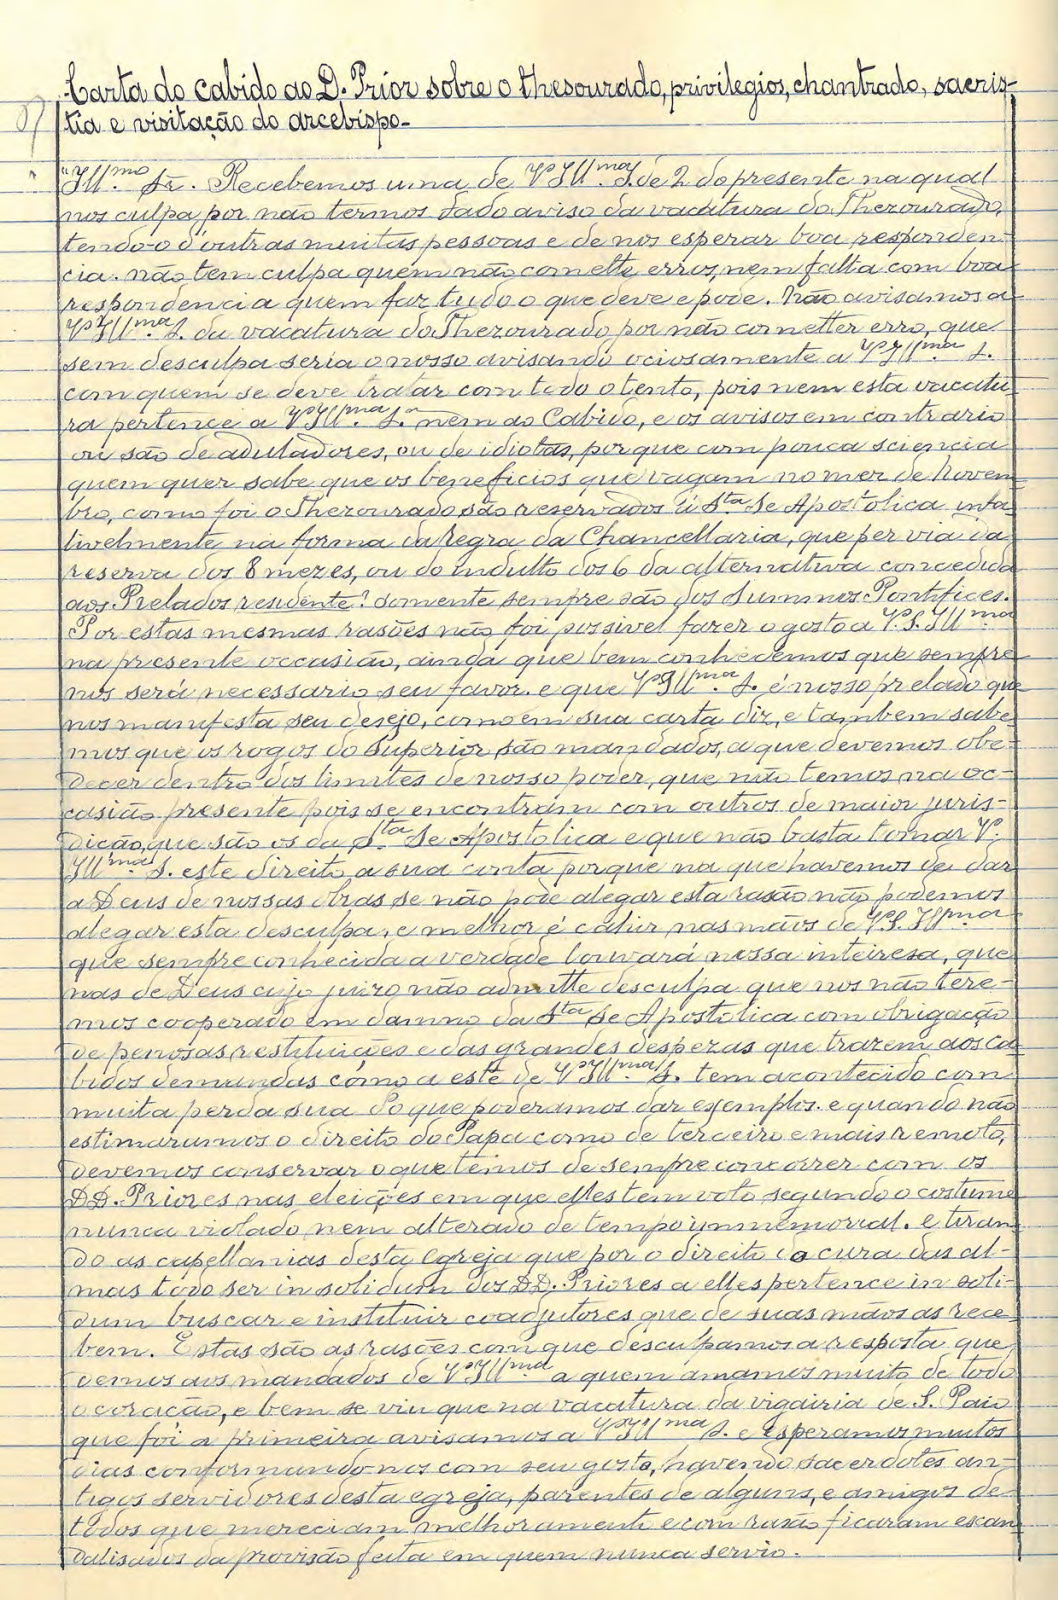 Carta do cabido ao D. Prior sobre o thesourado, privilegios, chantrado, sacris-
tia e visitação do arcebispo.-
"Ill.mo Sr. Recebemos uma de V. Ill.ma S. de 2 do presente na qual
nos culpa por não termos dado aviso da vacatura do Thezourado,
tendo-o d'outras muitas pessoas e de nos esperar boa responden-
cia. não tem culpa quem não comette erros, nem falta com boa
respondencia quem faz tudo o que deve e pode. Não avisamos a
V. Ill.ma S. da vacatura do Thezourado por não cometter erro, que
sem desculpa seria o nosso avisando ociosamente a V. Ill.ma S.
com quem se deve tratar com todo o tento, pois nem esta vacatu
ra pertence a V. Ill.ma S. nem ao Cabido, e os avisos em contrario
ou são de aduladores, ou de idiotas, porque com pouca sciencia
quem quer sabe que os beneficios que vagam no mez de Novem
bro, como foi o Thezourado são reservados á S.ta Se Apostolica infa
livelmente na forma da regra da Chancellaria, que per via da
reserva dos 8 mezes, ou do indulto dos 6 da alternativa concedida
aos Prelados residente? somente sempre são dos Summos Pontifices.
Por estas mesmas rasões não foi possivel fazer o gosto a V. S. Ill.ma
na presente occasião, ainda que bem conhecemos que sempre
nos será necessario seu favor. e que V. Ill.ma S. é nosso prelado que
nos manifesta seu desejo, como em sua carta diz, e tambem sabe
mos que os rogos do Superior são mandados, a que devemos obe-
decer dentro dos limites de nosso poder, que não temos na oc-
casião presente pois se encontram com outros de maior juris-
dição, que são os da S.ta Se Apostolica e que não basta tomar V.
Ill.ma S. este direito a sua conta porque na que havemos de dar
a Deus de nossas obras se não pode alegar esta rasão não podemos
alegar esta desculpa, e melhor é cahir nas mãos de V. S. Ill.ma
que sempre conhecida a verdade louvará nossa inteiresa, que
nas de Deus cujo juizo não admitte desculpa que nos não tere-
mos cooperado em damno da S.ta Se Apostolica com obrigação
de penosas restituições e das grandes despezas que trazem aos ca
bidos demandas como a este de V. Ill.ma S. tem acontecido com
muita perda sua do que poderamos dar exemplos. e quando não
estimaramos o direito do Papa como de terceiro e mais remoto,
devemos conservar o que temos de sempre concorrer com os
DD. Priores nas eleições em que elles tem voto segundo o costume
nunca violado nem alterado de tempo immemorial. e tiran
do as capellanias desta egreja que por o direito da cura das al-
mas todo ser in solidum dos DD. Priores a elles pertence in soli-
dum buscar e instituir coadjutores que de suas mãos as rece
bem. Estas são as rasões com que desculpamos a resposta que
demos aos mandados de V. Ill.ma a quem amamos muito de todo
o coração, e bem se viu que na vacatura da vigairia de S. Paio
que foi a primeira avisamos a V. Ill.ma S. e esperamos muitos
dias conformando-nos com seu gosto, havendo sacerdotes an-
tigos servidores desta egreja, parentes de alguns, e amigos de
todos que mereciam melhoramento e com rasão ficaram escan
dalisados da provisão feita em quem nunca servio.